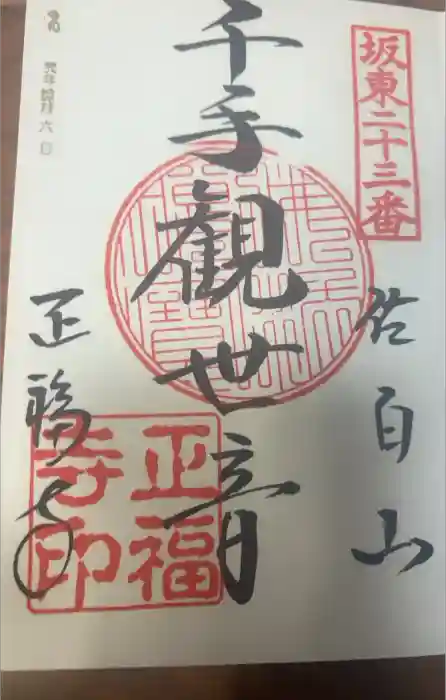 坂東二十三番
佐白山
千手觀世音
正福寺
正福
寺印
元年 六日